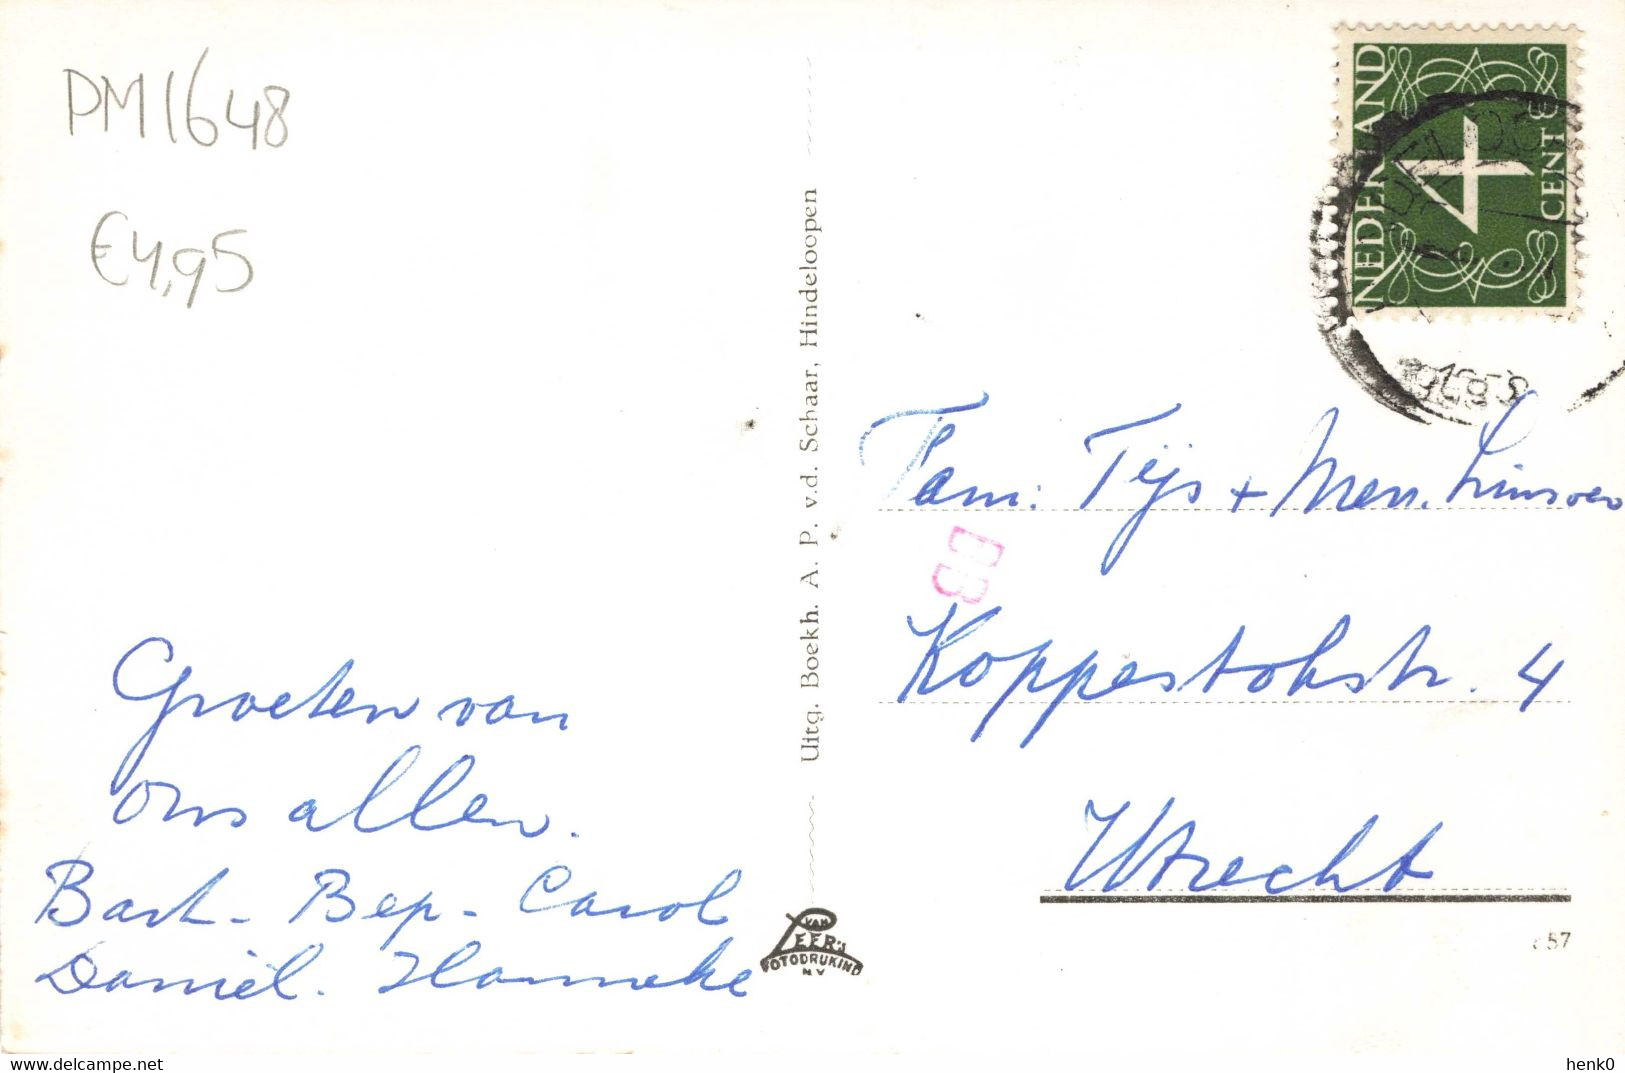 PM1648
€4,95
Groeten van
ons allen.
Bart - Bep - Carol
Daniël. Hanneke
Uitg. Boekh. A. P. v.d. Schaar, Hindeloopen
VAN
LEER'S
FOTODRUKIND
N.V.
NEDERLAND
4
CENT
Fam: Tijs + Men. Linsoen
BB
Koppestokstr. 4
Utrecht
57
delcampe.net
henk0